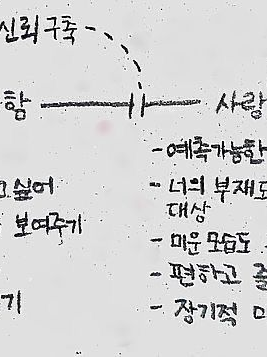 신뢰 구축
함 사랑
- 예측가능한
고 싶어
- 너의 부재도
대상
보여주기
- 미운 모습도
- 편하고 즐
기
- 장기적